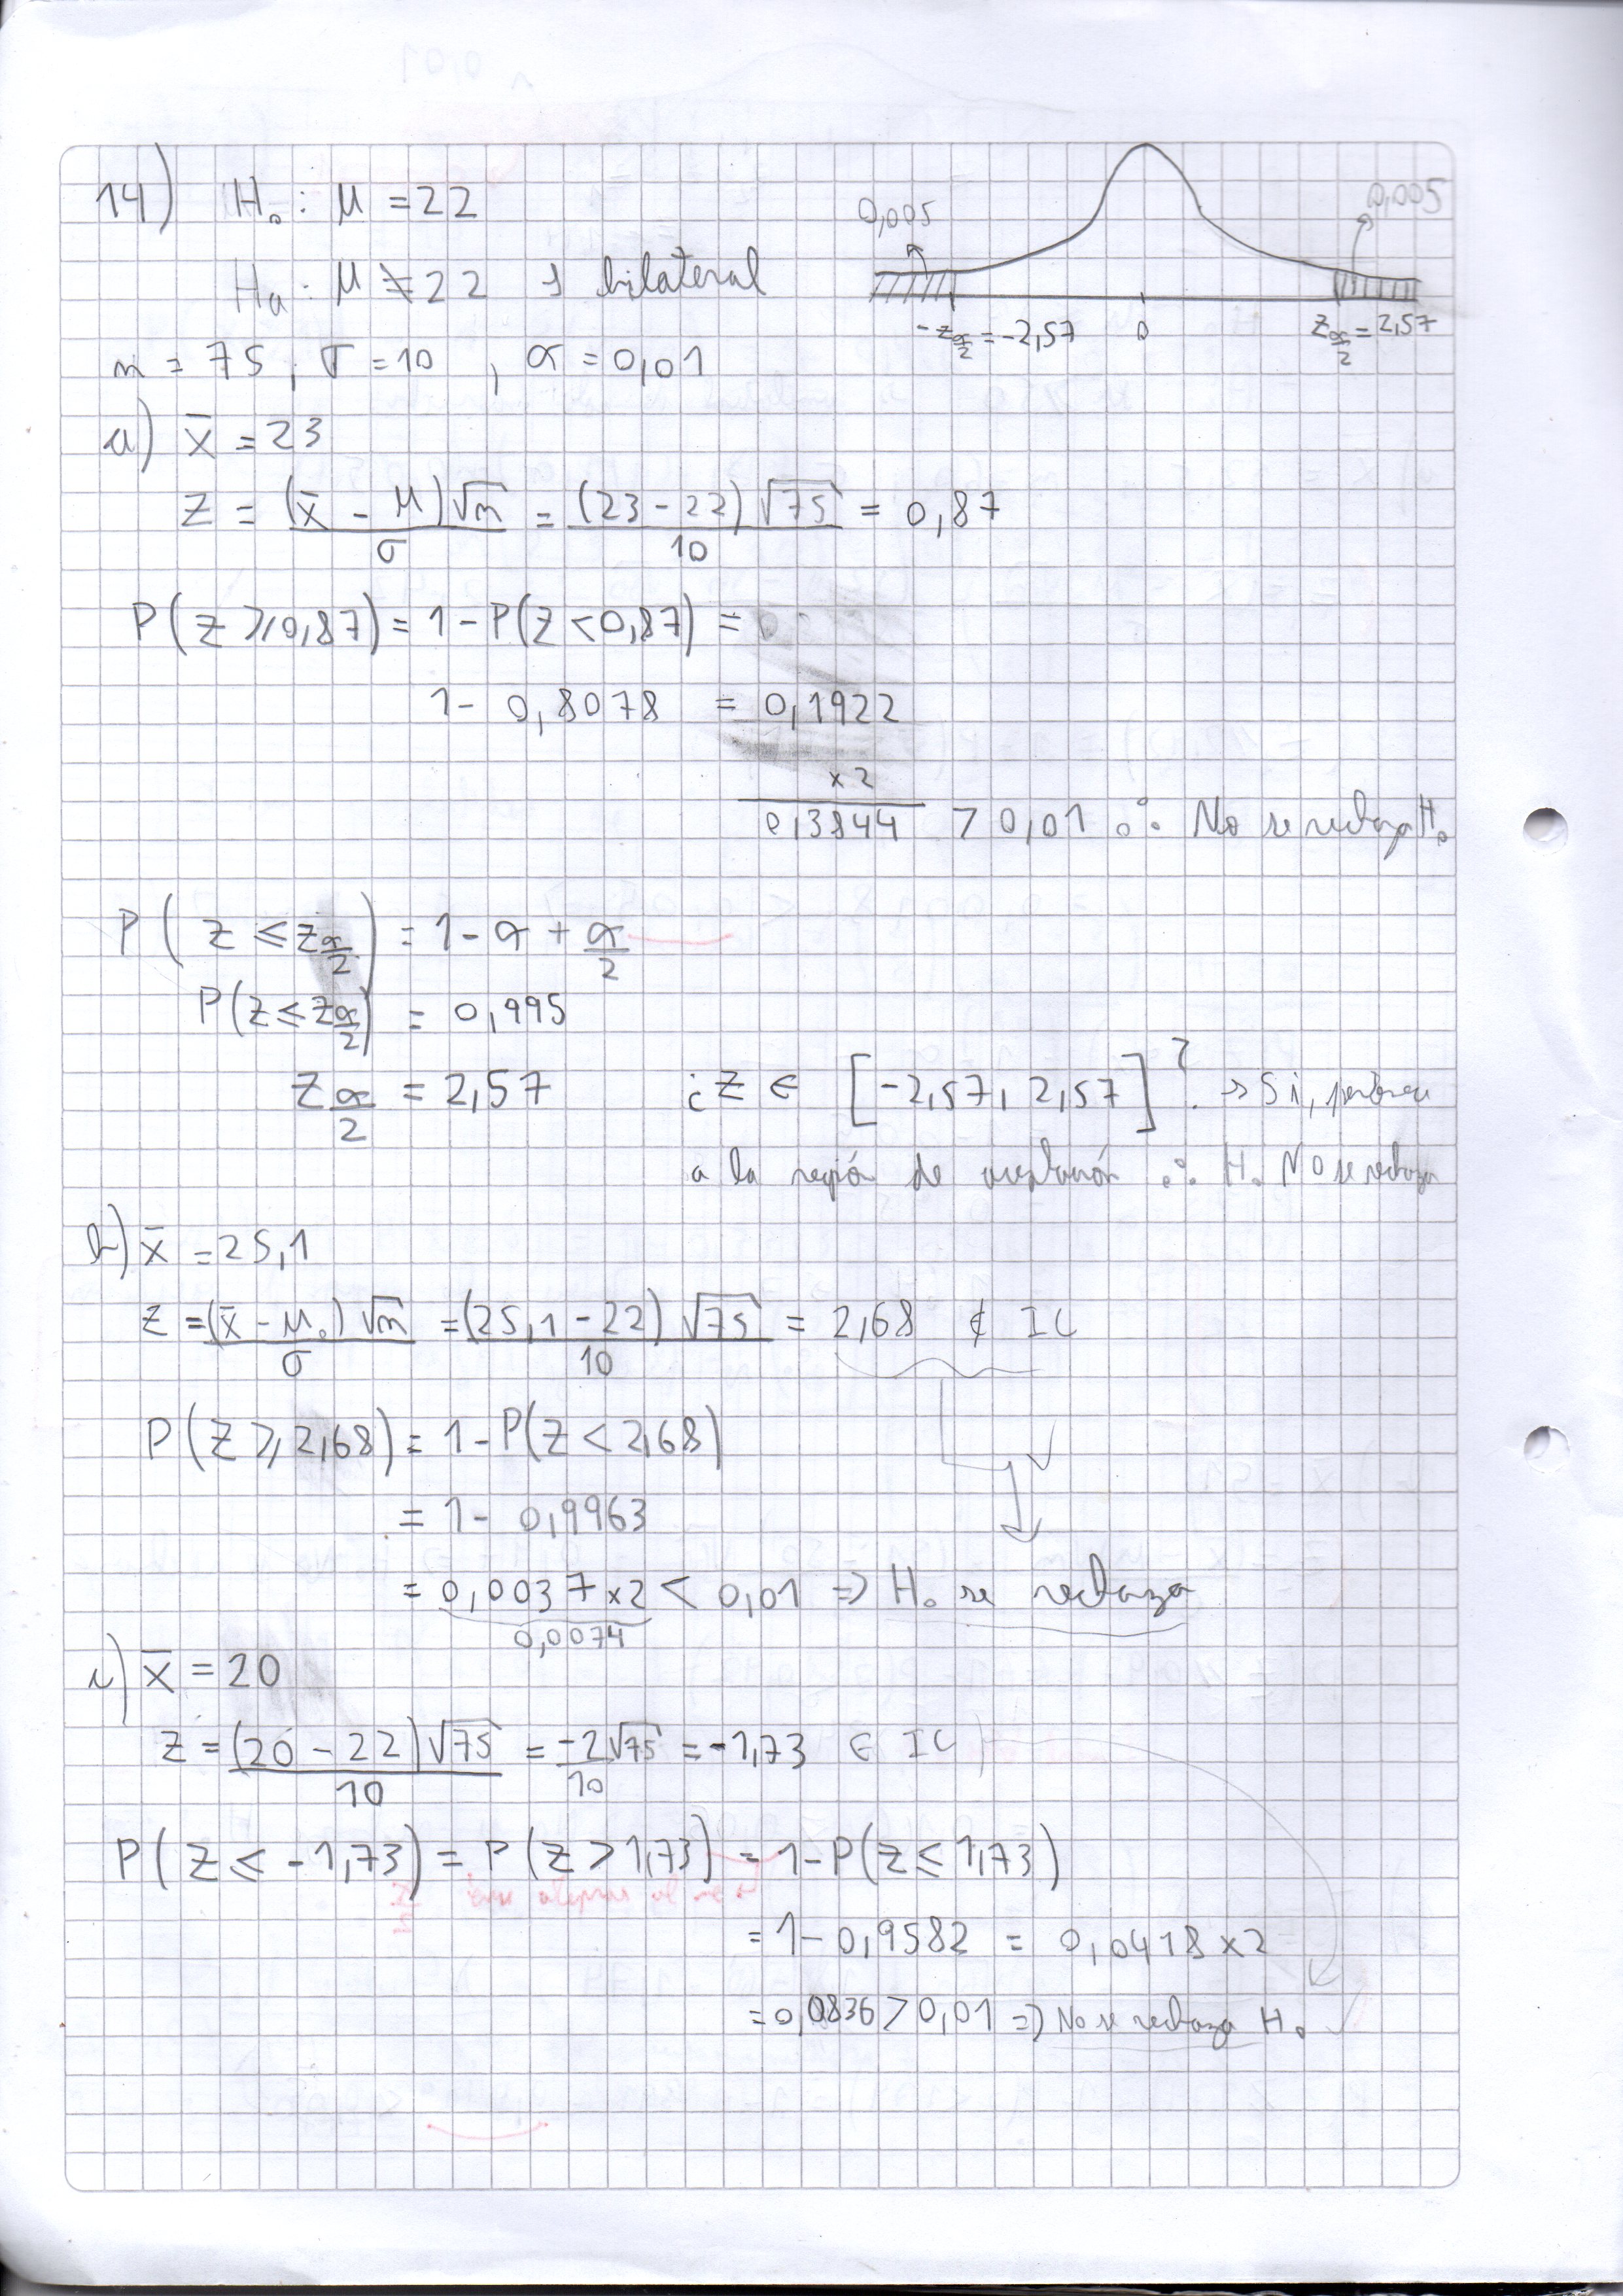 14) H₀ : μ = 22
Ha : μ ≠ 22 → bilateral
n = 75 ; σ = 10 , α = 0,01
0,005
0,005
-z_{α/2} = -2,57 0 z_{α/2} = 2,57
a) x̄ = 23
Z = (x̄ - μ)√n / σ = (23-22)√75 / 10 = 0,87
P(Z ⩾ 0,87) = 1 - P(Z < 0,87) =
1 - 0,8078 = 0,1922
x 2
0,3844 > 0,01 ∴ No se rechaza H₀
P(Z ⩽ z_{α/2}) = 1 - α + α/2
P(Z ⩽ z_{α/2}) = 0,995
z_{α/2} = 2,57 ¿Z ∈ [-2,57, 2,57]? → Si, pertenece
a la región de aceptación ∴ H₀ No se rechaza
b) x̄ = 25,1
Z = (x̄ - μ₀)√n / σ = (25,1 - 22)√75 / 10 = 2,68 ∉ IC
P(Z ⩾ 2,68) = 1 - P(Z < 2,68)
= 1 - 0,9963
= 0,0037 x2 < 0,01 ⇒ H₀ se rechaza
0,0074
c) x̄ = 20
Z = (20 - 22)√75 / 10 = -2√75 / 10 = -1,73 ∈ IC
P(Z ⩽ -1,73) = P(Z > 1,73) = 1 - P(Z ⩽ 1,73)
= 1 - 0,9582 = 0,0418 x2
= 0,0836 > 0,01 ⇒ No se rechaza H₀